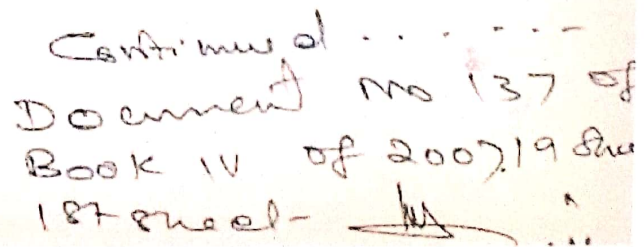 Continued .......
Document No 137 of
BOOK IV of 2007.19 She
1st sheet-